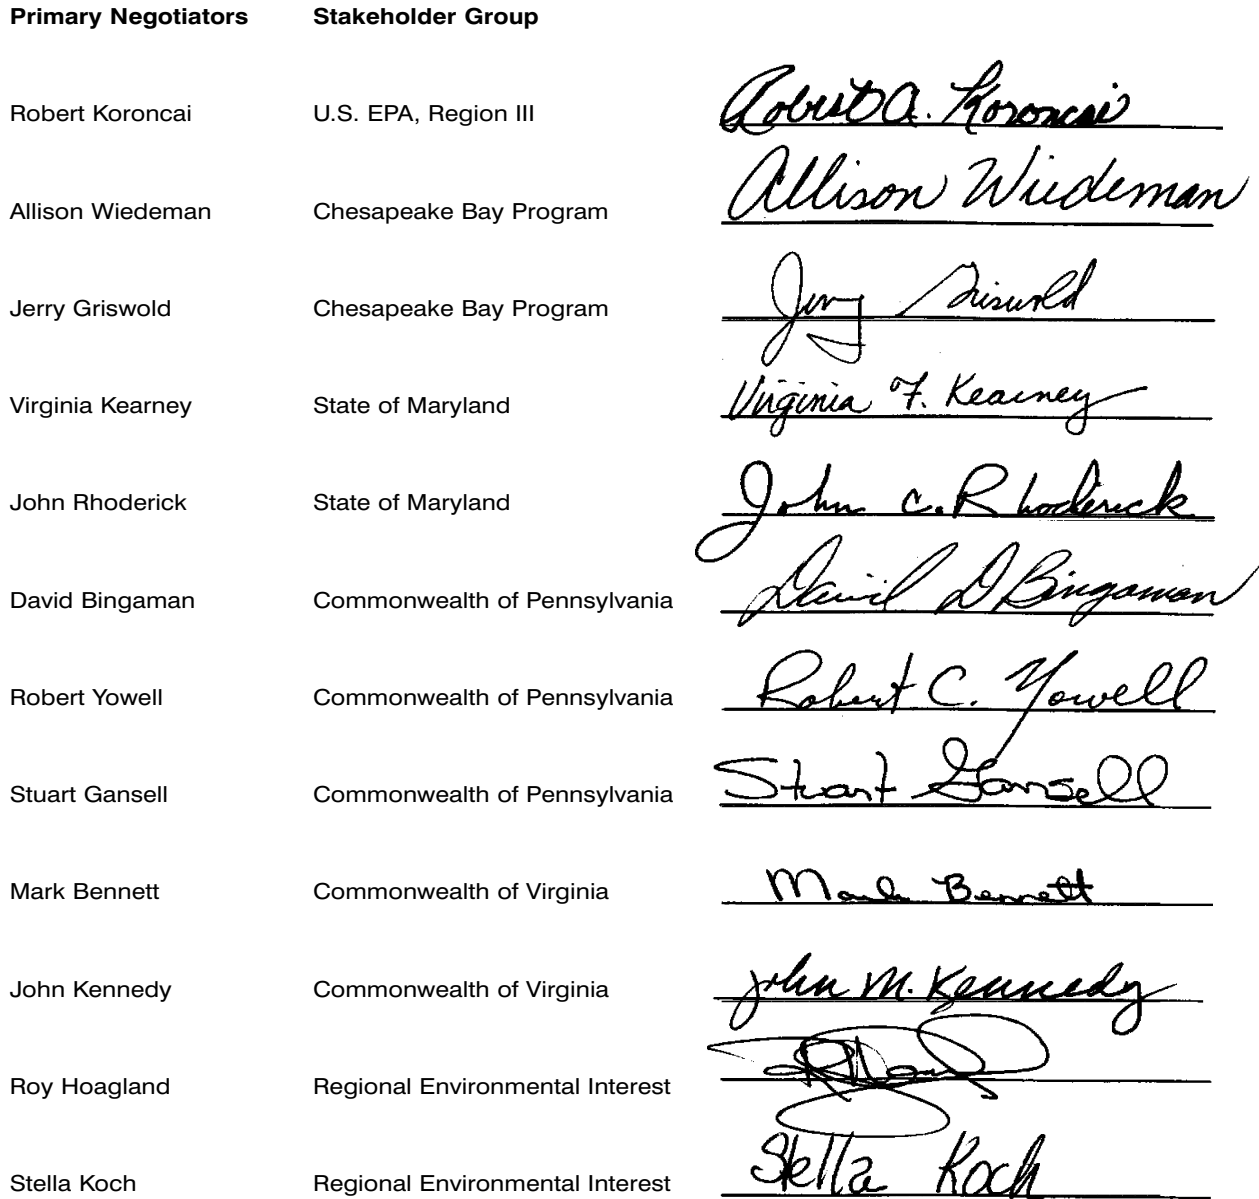 Primary Negotiators Stakeholder Group
Robert Koroncai U.S. EPA, Region III Robert A. Koroncai
Allison Wiedeman Chesapeake Bay Program Allison Wiedeman
Jerry Griswold Chesapeake Bay Program Jerry Griswold
Virginia Kearney State of Maryland Virginia F. Kearney
John Rhoderick State of Maryland John C. Rhoderick
David Bingaman Commonwealth of Pennsylvania David D Bingaman
Robert Yowell Commonwealth of Pennsylvania Robert C. Yowell
Stuart Gansell Commonwealth of Pennsylvania Stuart Gansell
Mark Bennett Commonwealth of Virginia Mark Bennett
John Kennedy Commonwealth of Virginia John M. Kennedy
Roy Hoagland Regional Environmental Interest
Stella Koch Regional Environmental Interest Stella Koch